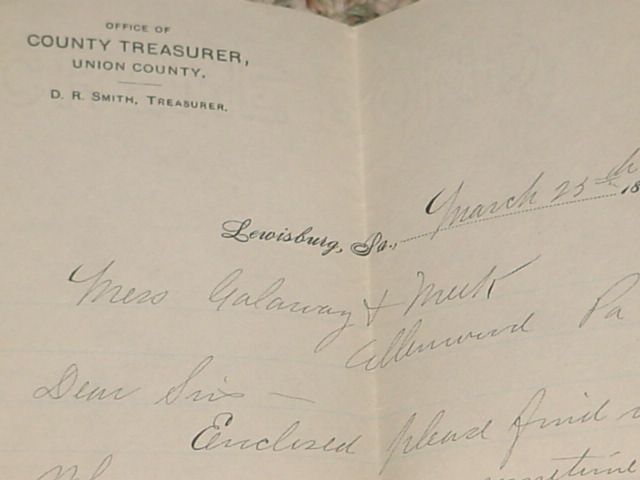 OFFICE OF
COUNTY TREASURER,
UNION COUNTY.
D. R. SMITH, TREASURER.
Lewisburg, Pa., March 25th 18
Mess Galaway & Meek
Allenwood Pa
Dear Sirs —
Enclosed please find
sometime